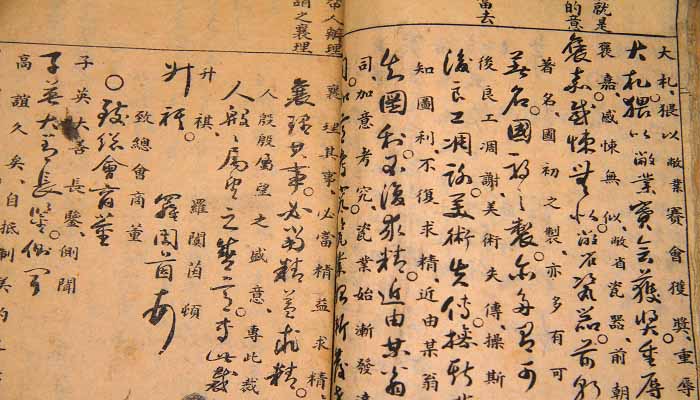 就是
的意
當去
大札猥以敝業賽會獲獎重辱
大札猥以敝業賽會獲獎重辱
褒嘉感悚無似敝省瓷器前朝
褒嘉感悚無似敝省瓷器前朝
著名國初之製亦多有可
著名國初之製亦多有可
後良工凋謝美術失傳操斯
後良工凋謝美術失傳操斯
知圖利不復求精近由某翁
知圖利不復求精近由某翁
司加意考究瓷業始漸發達
司加意考究瓷業始漸發達
常人辦理
謂之襄理
襄理其事必當精益求精
襄理其事必當精益求精
人殷殷屬望之盛意專此裁
人殷殷屬望之盛意專此裁
升祺 羅闓茵頓
升祺 羅闓茵頓
致總會商董
致總會商董
子英大善長鑒側聞
子英大善長鑒側聞
高誼久矣自抵制美約